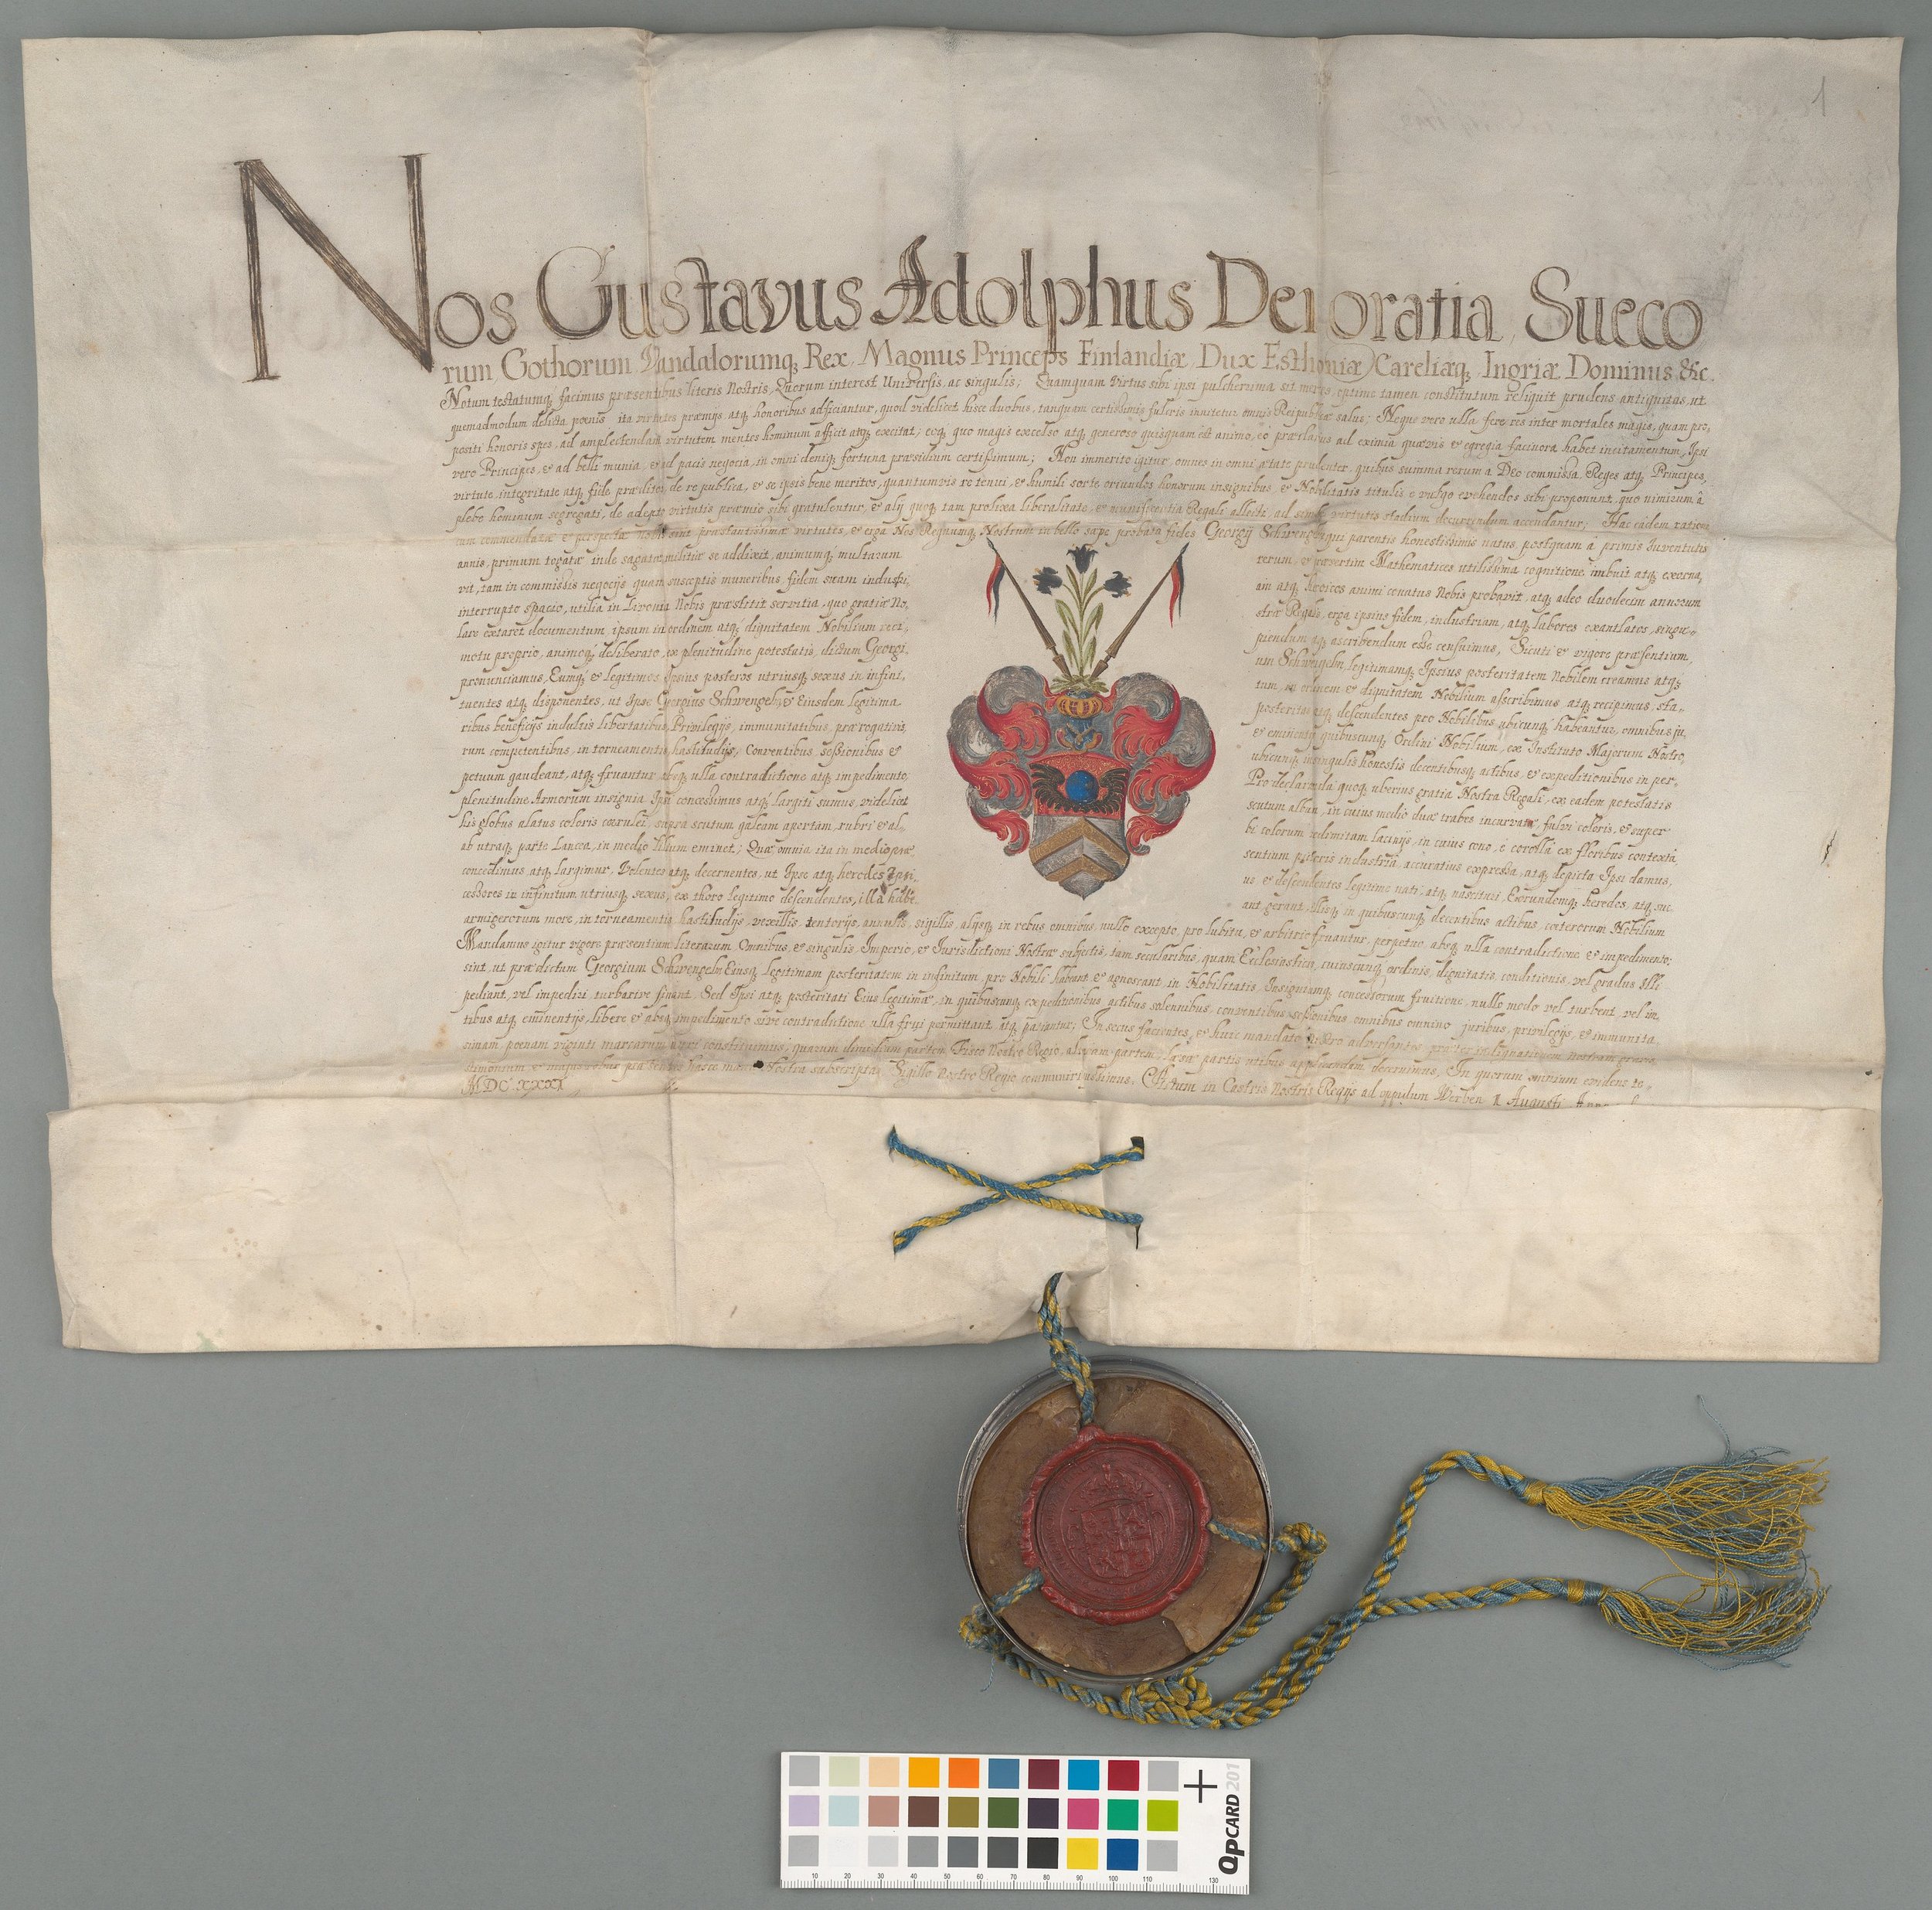 Nos Gustavus Adolphus Dei Gratia, Sueco
rum, Gothorum, Vandalorumq, Rex, Magnus Princeps Finlandiæ, Dux Esthoniæ, Careliæq, Ingriæ Dominus &c.
Notum testatumq, facimus præsentibus literis Nostris, Quorum interest Universis, ac singulis; Quamquam Virtus sibi ipsi pulcherrima sit merces, optime tamen constitutum reliquit prudens antiquitas, ut
quemadmodum delicta poenis ita virtutes præmijs atq, honoribus adficiantur, quod videlicet hisce duobus, tanquam certissimis fulcris innitetur omnis Reipublicæ salus; Neque vero ulla fere res inter mortales magis, quam pro,
positi honoris spes, ad amplectendam virtutem mentes hominum afficit atq, excitat; eoq, quo magis excelso atq, generoso quisquam est animo, eo præclarius ad eximia quævis & egregia facinora habet incitamentum, Ipsi
vero Principes, & ad belli munia, & ad pacis negocia, in omni deniq, fortuna præsidium certissimum; Non immerito igitur, omnes in omni ætate prudenter, quibus summa rerum a Deo commissa, Reges atq, Principes,
virtute, integritate atq, fide præditos, de republica, & se ipsis bene meritos, quantumvis re tenui, & humili sorte oriundos honorum insignibus, & Nobilitatis titulis e vulgo evehendos sibi proponunt, quo nimirum â
plebe hominum segregati, de adepto virtutis præmio sibi gratulentur, & alij quoq, tam prolixa liberalitate, & munificentia Regali allecti, ad simile virtutis stadium decurrendum accendantur; Hac eadem ratione
cum commendatæ & perspectæ Nobis sint præstantissimæ virtutes, & erga Nos Regnumq, Nostrum in bello sæpe probata fides Georgij Schwengeln, qui parentis honestissimis natus, postquam â primis Iuventutis
annis, primum togatæ inde sagatæ militiæ se addixit, animumq, multarum rerum, & præsertim Mathematices utilissima cognitione imbuit atq, exorna,
vit, tam in commissis negocijs quam susceptis muneribus, fidem suam industri, am atq, heroicos animi conatus Nobis probavit, atq, adeo duodecim annorum
interrupto spacio, utilia in Livonia Nobis præstitit servitia, quo gratiæ No, stræ Regiæ, erga ipsius fidem, industriam, atq, labores exantlatos, singu-
lare extaret documentum, ipsum in ordinem atq, dignitatem Nobilium reci, piendum atq, ascribendum esse censuimus, Sicuti & vigore præsentium,
motu proprio, animoq, deliberato, ex plenitudine potestatis, dictum Georgi, um Schwengeln, legitimamq, Ipsius posteritatem Nobilem creamus atq,
pronunciamus, Eumq, & legitimos Ipsius posteros utriusq, sexus in infini, tum, in ordinem & dignitatem Nobilium asscribimus atq, recipimus, sta-
tuentes atq, disponentes, ut Ipse Georgius Schwengeln, & Eiusdem legitima posteritas atq, descendentes pro Nobilibus ubicunq, habeantur, omnibus ju,
ribus beneficijs indultis libertatibus, Privilegijs, immunitatibus, prærogativis, & eminentijs quibuscunq, Ordini Nobilium, ex Instituto Majorum Nostro,
rum competentibus, in torneamentis, hastiludijs, Conventibus, sessionibus & ubicunq, in singulis honestis decentibusq, actibus, & expeditionibus in per-
petuum gaudeant, atq, fruantur absq, ulla contradictione atq, impedimento, Pro declaranda quoq, uberius gratia Nostra Regali, ex eadem potestatis
plenitudine Armorum insignia Ipsi concessimus atq, largiti sumus, videlicet scutum album, in cuius medio duæ trabes incurvatæ, fulvi coloris, & super
his globus alatus coloris coerulei, supra scutum galeam apertam, rubri & al- bi colorum redimitam lacinijs, in cuius cono, e corolla ex floribus contexta,
ab utraq, parte Lancea, in medio lilium eminet; Quæ omnia ita in medio præ- sentium pictoris industria, accuratius expressa, atq, depicta Ipsi damus,
concedimus, atq, largimur, Volentes atq, decernentes, ut Ipse atq, heredes Ipsi- us, & descendentes legitime nati, atq, nascituri, Eorundemq, heredes, atq, suc
cessores in infinitum, utriusq, sexus, ex thoro legitimo descendentes, illa habe- ant, gerant, illisq, in quibuscunq, decentibus actibus, cæterorum Nobilium
armigerorum more, in torneamentis, hastiludijs, vexillis, tentorijs, annulis, sigillis, alijsq, in rebus omnibus, nullo excepto, pro lubitu, & arbitrio fruantur, perpetuo, absq, ulla contradictione & impedimento;
Mandamus igitur vigore præsentium literarum Omnibus, & singulis, Imperio, & Iurisdictioni Nostræ subjectis, tam secularibus, quam Ecclesiasticis, cuiuscunq, ordinis, dignitatis, conditionis, vel gradus illi
sint, ut prædictum Georgium Schwengeln, Eiusq, legitimam posteritatem in infinitum, pro Nobili habeant & agnoscant, in Nobilitatis, Insigniumq, concessorum fruitione, nullo modo vel turbent, vel im
pediant, vel impediri, turbarive sinant, Sed Ipsi atq, posteritati Eius legitimæ, in quibuscunq, expeditionibus, actibus solennibus, conventibus, sessionibus, omnibus omnino juribus, privilegijs, & immunita,
tibus atq, eminentijs, libere & absq, impedimento sive contradictione ulla frui permittant, atq, patiantur; In secus facientes, & huic mandato Nostro adversantes, præter indignationem Nostram gravis
simam, poenam viginti marcarum auri constituimus, quarum dimidiam partem Fisco Nostro Regio, aliam partem læsæ partis usibus applicandam decernimus, In quorum omnium evidens te-
stimonium, & majus robur præsentes hasce manu Nostra subscriptas, Sigillo Nostro Regio communiri jussimus. Actum in Castris Nostris Regijs ad oppidum Werben 1 Augusti Anno
MDCXXXI
1
QPCARD 201
10 20 30 40 50 60 70 80 90 100 110 130